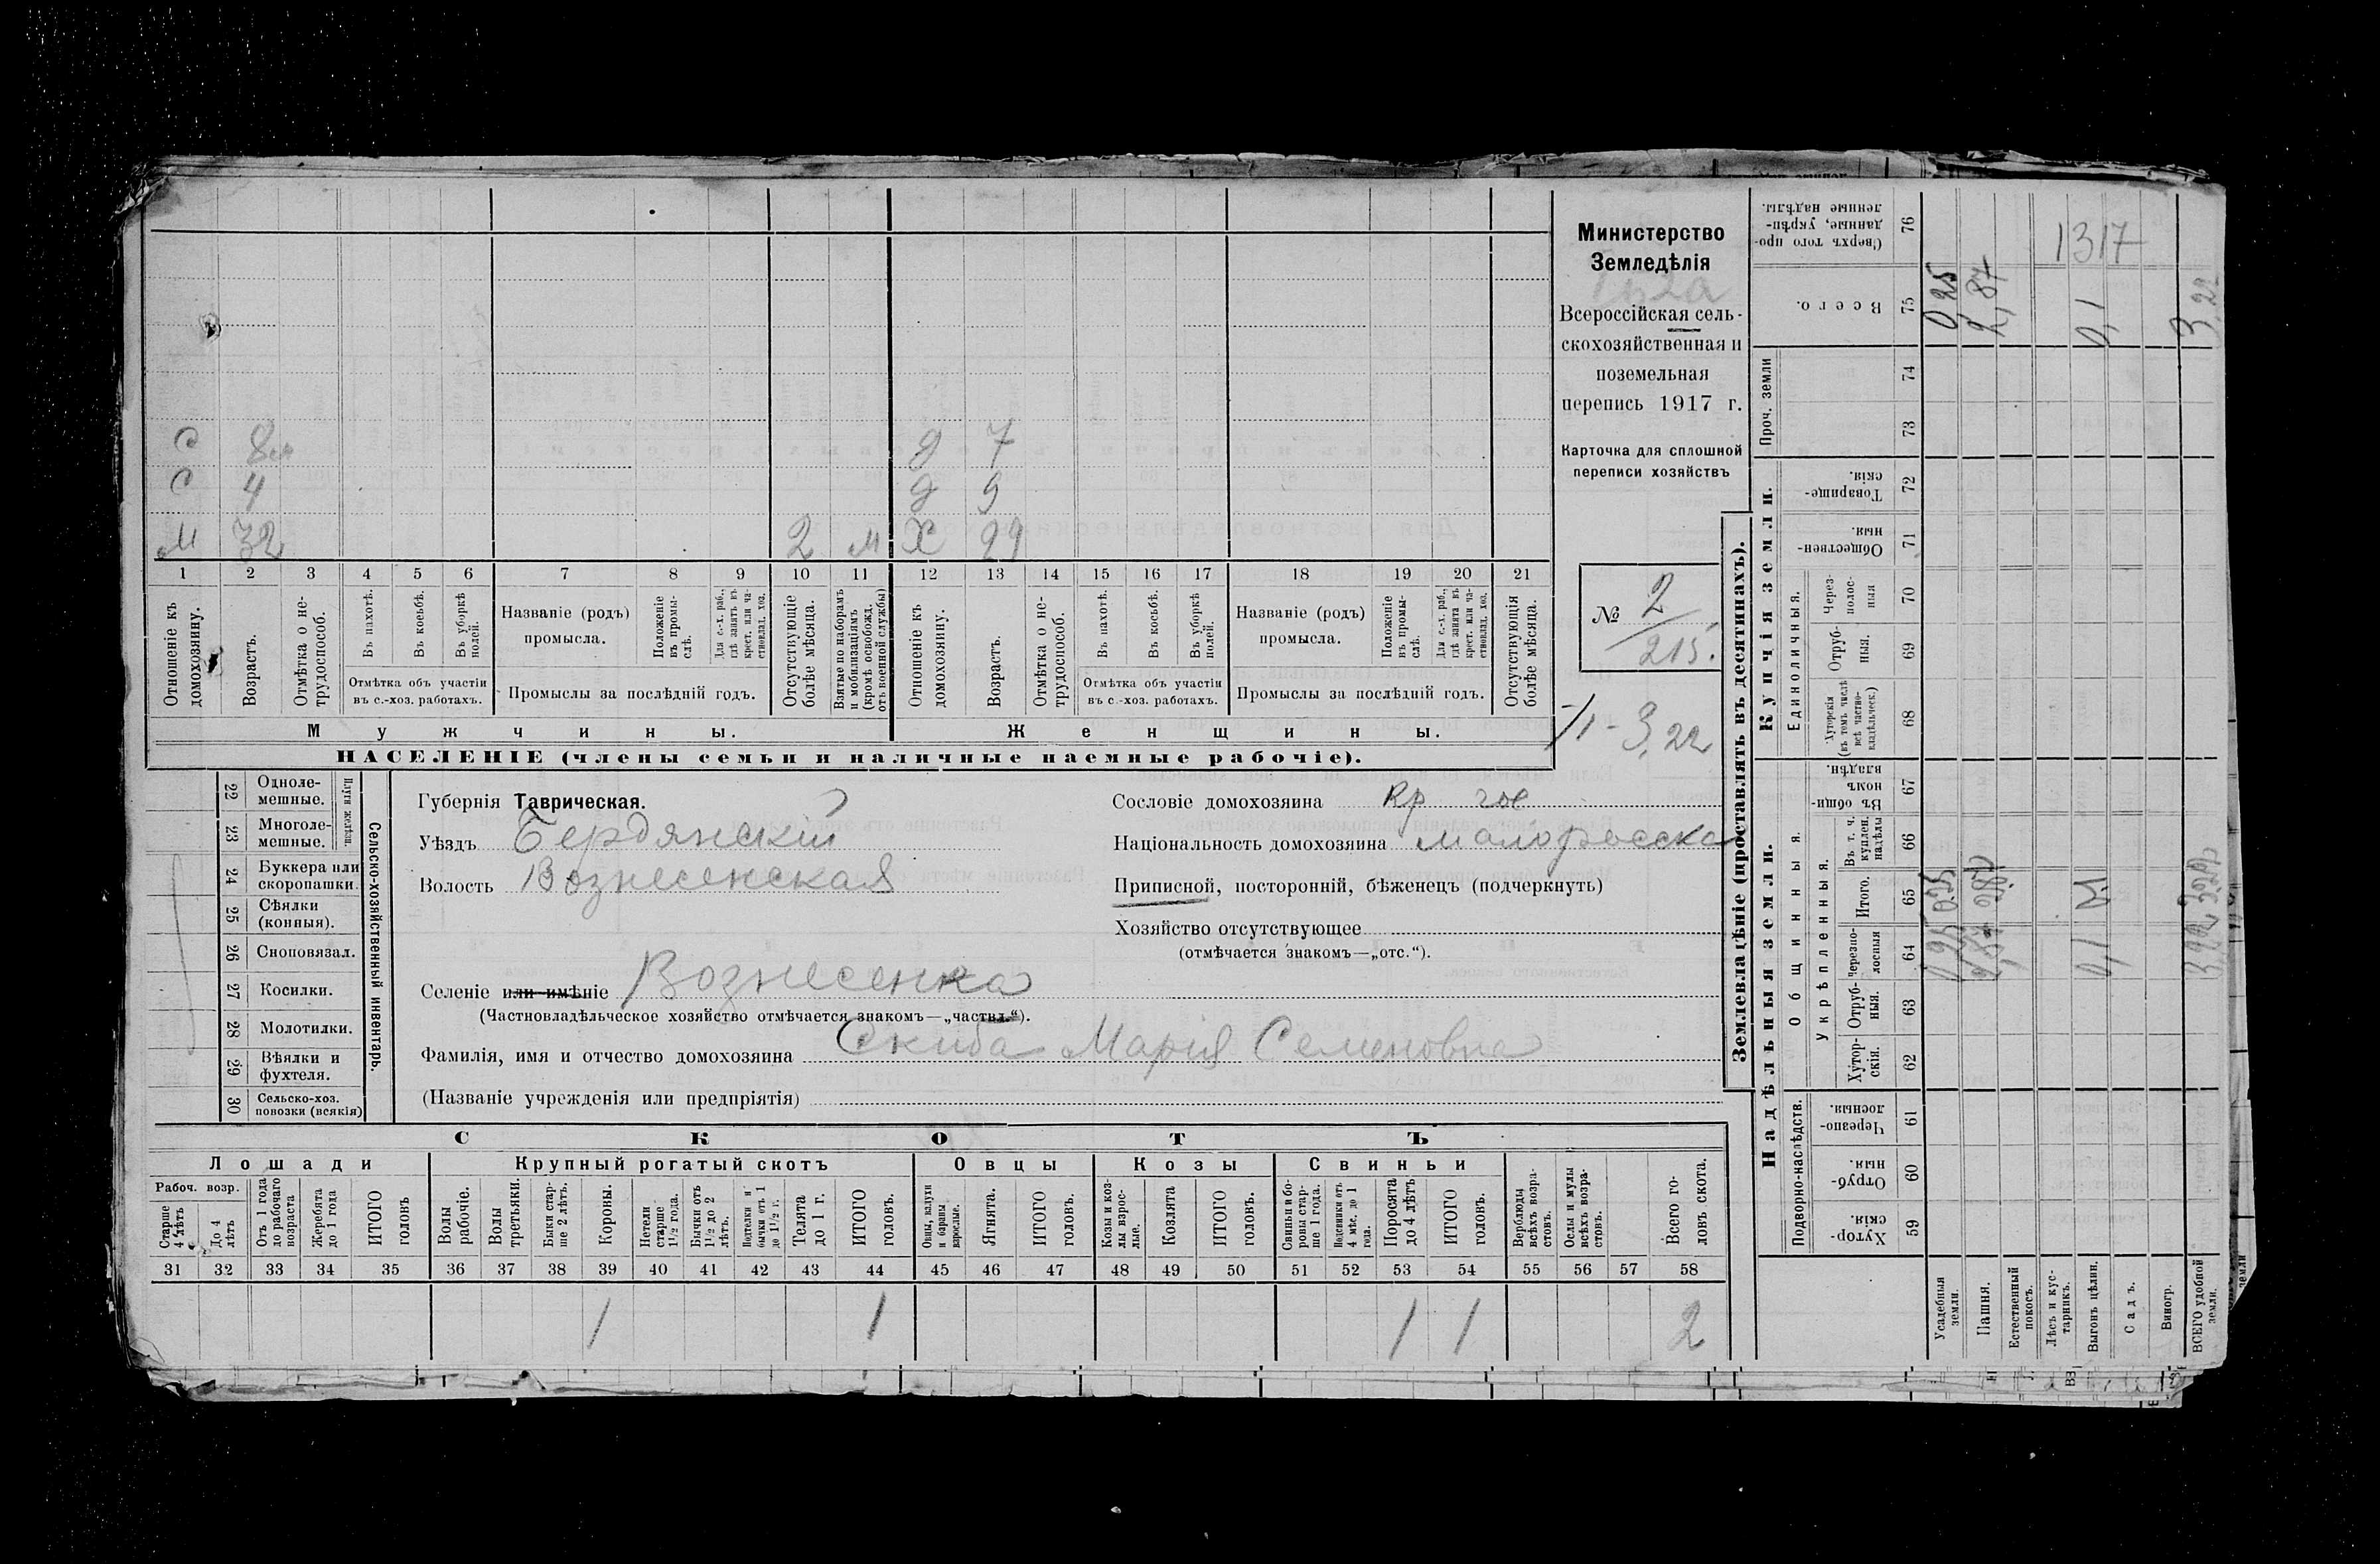 Министерство
Земледѣлія
Всероссійская сель-
скохозяйственная и
поземельная
перепись 1917 г.
Карточка для сплошной
переписи хозяйствъ
№ 2
215.
3,22
С 8 д 7
С 4 д 9
М 32 2 м Х 29
1 2 3 4 5 6 7 8 9 10 11 12 13 14 15 16 17 18 19 20 21
Отношеніе къ домохозяину.
Возрастъ.
Отмѣтка о не-трудоспособ.
Въ пахотѣ.
Въ косьбѣ.
Въ уборкѣ полей.
Отмѣтка объ участіи
въ с.-хоз. работахъ.
Названіе (родъ)
промысла.
Положеніе въ промы-слѣ.
Для с.-х. раб., гдѣ занятъ въ крест. или ча-стновлад. хоз.
Промыслы за послѣдній годъ.
Отсутствующіе болѣе мѣсяца.
Взятые по наборамъ и мобилизаціямъ (кромѣ освобожд. отъ военной службы)
Отношеніе къ домохозяину.
Возрастъ.
Отмѣтка о не-трудоспособ.
Въ пахотѣ.
Въ косьбѣ.
Въ уборкѣ полей.
Отмѣтка объ участіи
въ с.-хоз. работахъ.
Названіе (родъ)
промысла.
Положеніе въ промы-слѣ.
Для с.-х. раб., гдѣ занята въ крест. или ча-стновлад. хоз.
Промыслы за послѣдній годъ.
Отсутствующія болѣе мѣсяца.
Мужчины.
Женщины.
НАСЕЛЕНІЕ (члены семьи и наличные наемные рабочіе).
22 Одноле-мешные.
23 Многоле-мешные.
Плуги желѣзн.
24 Буккера или скоропашки.
25 Сѣялки (конныя).
26 Сноповязал.
27 Косилки.
28 Молотилки.
29 Вѣялки и фухтеля.
30 Сельско-хоз. повозки (всякія)
Сельско-хозяйственный инвентарь.
Губернія Таврическая.
Уѣздъ Бердянскій
Волость Вознесенская
Селеніе или имѣніе Вознесенка
(Частновладѣльческое хозяйство отмѣчается знакомъ—„частвл.“).
Фамилія, имя и отчество домохозяина Скиба Марія Семеновна
(Названіе учрежденія или предпріятія)
Сословіе домохозяина Кр
Національность домохозяина малоросска
Приписной, посторонній, бѣженецъ (подчеркнуть)
Хозяйство отсутствующее
(отмѣчается знакомъ—„отс.“).
СКОТЪ
Лошади
Крупный рогатый скотъ
Овцы
Козы
Свиньи
Рабоч. возр.
Старше 4 лѣтъ
До 4 лѣтъ
Отъ 1 года до рабочаго возраста
Жеребята до 1 года
ИТОГО головъ
Волы рабочіе.
Волы третьяки.
Быки стар-ше 2 лѣтъ.
Коровы.
Нетели старше 1½ года.
Бычки отъ 1½ до 2 лѣтъ.
Подтелки и бычки отъ 1 до 1½ г.
Телята до 1 г.
ИТОГО головъ.
Овцы, валухи и бараны взрослые.
Ягнята.
ИТОГО головъ.
Козы и коз-лы взрос-лые.
Козлята
ИТОГО головъ.
Свиньи и бо-ровы стар-ше 1 года.
Подсвинки отъ 4 мѣс. до 1 года.
Поросята до 4 лѣтъ
ИТОГО головъ.
Верблюды всѣхъ возра-стовъ.
Ослы и мулы всѣхъ возра-стовъ.
Всего го-ловъ скота.
31 32 33 34 35 36 37 38 39 40 41 42 43 44 45 46 47 48 49 50 51 52 53 54 55 56 57 58
1 1 1 1 2
Землевладѣніе (проставлять въ десятинахъ).
Надѣльныя земли.
Купчія земли.
Проч. земли
Подворно-наслѣдств.
Общинныя
Укрѣпленныя.
Единоличныя.
Сверхъ того про-данные, укрѣп-ленные надѣлы. 76
Всего. 75
74
73
Товарище-скія. 72
Обществен-ныя. 71
Черезполос-ныя 70
Отруб-ныя. 69
Хуторскія (въ томъ числѣ всѣ частно-владѣльческ.) 68
Въ общи-номъ владѣн. 67
Въ т. ч. куплен. надѣлы 66
Итого. 65
Черезпо-лосныя 64
Отруб-ныя. 63
Хутор-скія. 62
Черезпо-лосныя. 61
Отруб-ныя. 60
Хутор-скія. 59
Усадебныя земли.
Пашня.
Естественный покосъ.
Лѣсъ и кус-тарникъ.
Выгонъ цѣлин.
Садъ.
Виногр.
ВСЕГО удобной земли.
1317
0,25 2,87 0,1 3,22
0,25 2,87 0,1 3,22